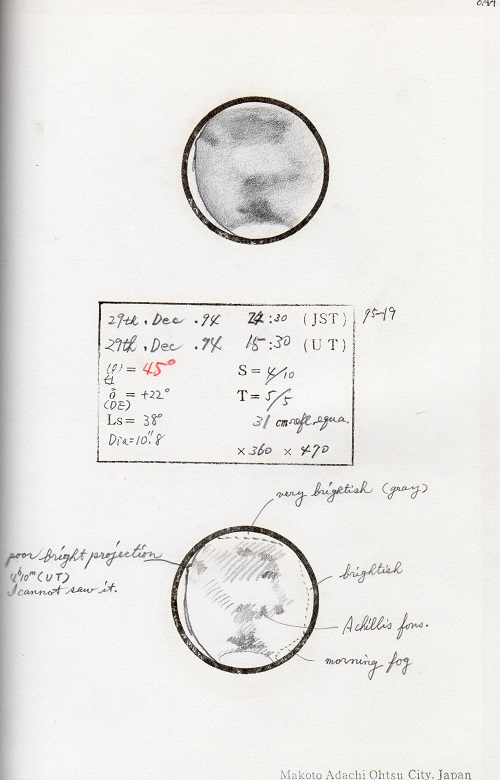 29th. Dec .94 24:30 (JST)
95-19
29th. Dec .94 15:30 (UT)
= 45° S = 4/10
δ = +22° T = 5/5
(DE)
Ls = 38° 31 cm refl. equa.
Dia=10".8
×360 ×470
very brightish (gray)
poor bright projection
(UT)
I cannot saw it.
brightish
Achillis fons.
morning fog
Makoto Adachi Ohtsu City. Japan